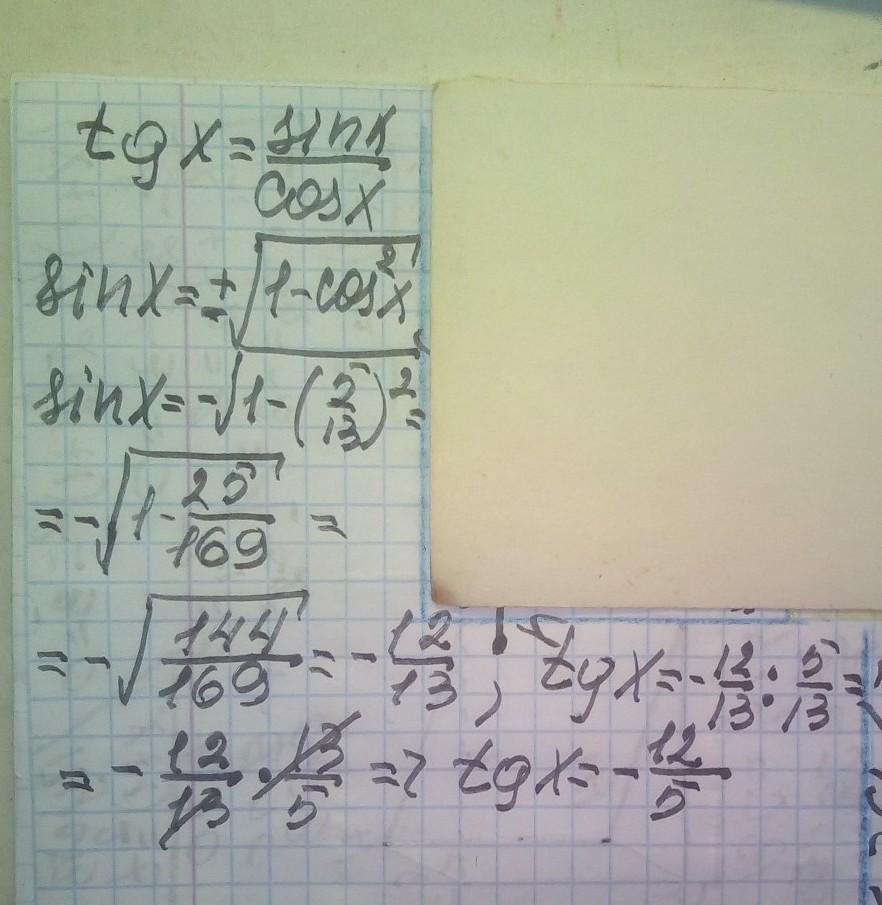 tg x = sin x / cos x
sin x = ±√(1 - cos² x)
sin x = -√1 - (5/13)² =
= -√(1 - 25/169) =
= -√(144/169) = -12/13, tg x = -12/13 : 5/13 =
= -12/13 · 13/5 => tg x = -12/5